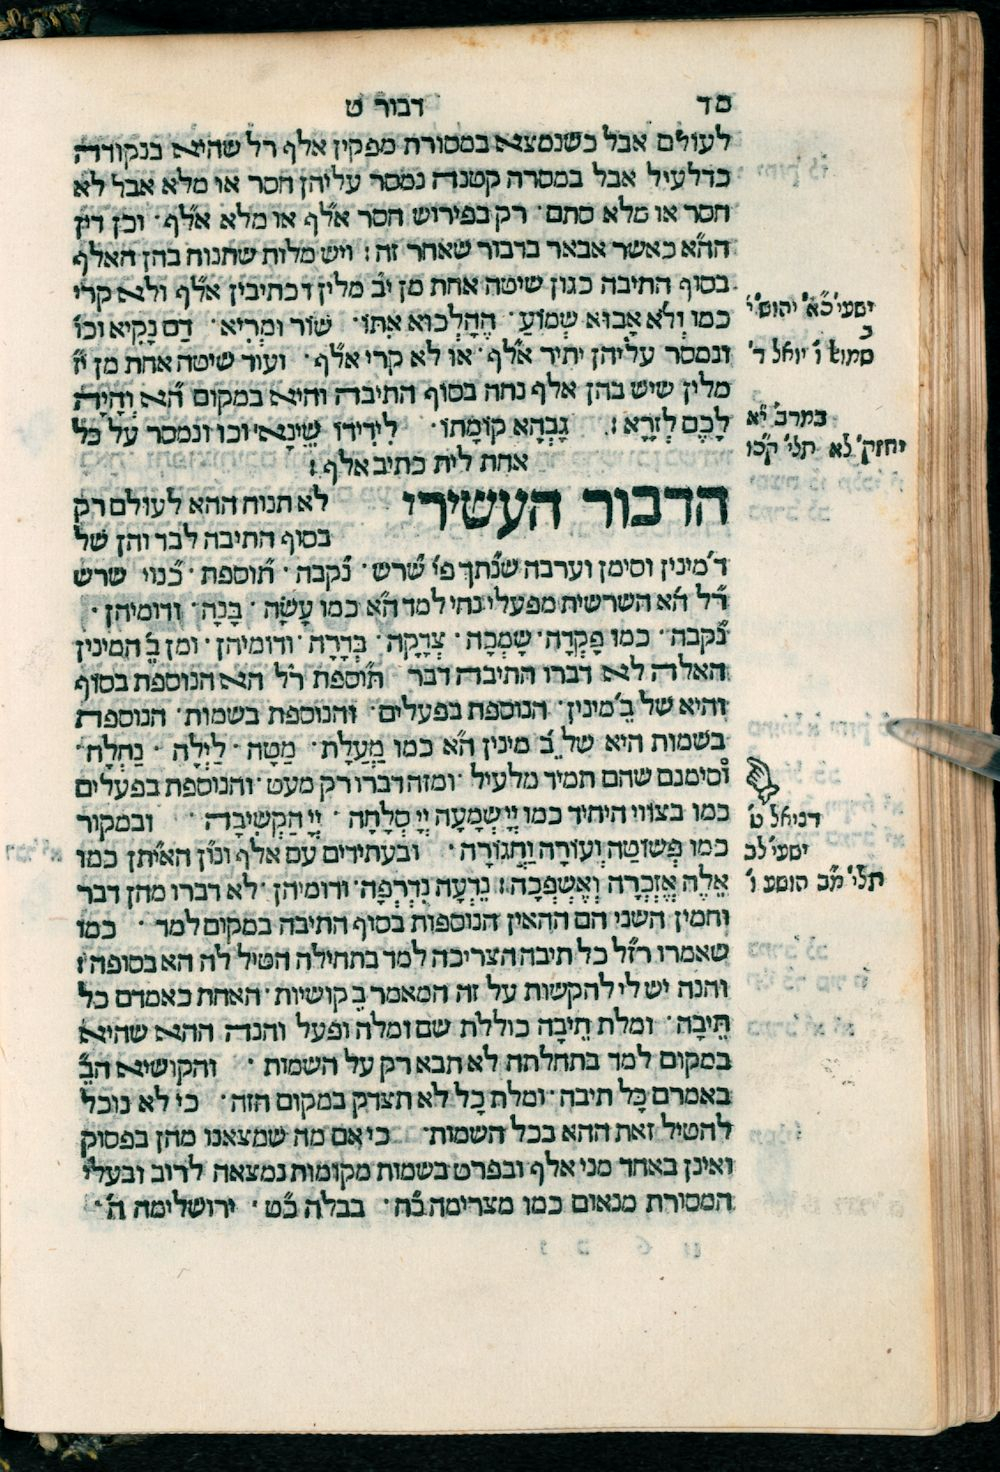 סד דבור ט
לעולם אבל כשנמצא במסורת מפקין אלף רל שהיא בנקודה
כדלעיל אבל במסרה קטנה נמסר עליהן חסר או מלא אבל לא
חסר או מלא סתם· רק בפירוש חסר א״לף או מלא א״לף· וכן דין
הה״א כאשר אבאר בדבור שאחר זה: ויש מלות שתנוח בהן האלף
בסוף התיבה כגון שיטה אחת מן י״ב מלין דכתיבין א״לף ולא קרי
כמו וְלֹא אָבוּא שְׁמוֹעַ· הֶהָלְכוּא אִתּוֹ· שׁוֹר וּמְרִיא· דַם נָקִיא וכו
ונמסר עליהן יתיר א״לף· או לא קרי א״לף· ועוד שיטה אחת מן י״ז
מלין שיש בהן אלף נחה בסוף התיבה והיא במקום ה״א וְהָיָה
לָכֶם לְזָרָא: גָבְהָא קוֹמָתוֹ· לִידִידוֹ שֵׁינָא· וכו ונמסר על כל
אחת לית כתיב אלף:
הדבור העשירי לא תנוח ההא לעולם רק
בסוף התיבה לבר והן של
ד׳ מינין וסימן וערבה שנ״תך פי׳ ש״רש· נ״קבה· ת״וספת· כ״נוי שרש
ר״ל ה״א השרשית מפעלי נחי למד ה״א כמו עָשָׂה· בָּנָה· ודומיהן·
נ״קבה· כמו פָּקְדָה· שָׂמְחָה· צְדָקָה· בְּדָרָה· ודומיהן· ומן ב׳ המינין
האלה לא דברו התיבה דבר תּ״וספת ר״ל הא הנוספת בסוף
והיא של ב׳ מינין· הנוספת בפעלים· והנוספת בשמות· הנוספת
בשמות היא של ב׳ מינין ה״א כמו מַעְלָת· מַטָּה· לַיְלָה· נַחְלָה·
וסימנם שהם תמיד מלעיל· ומזה דברו רק מעט· והנוספת בפעלים
כמו בצווי היחיד כמו יְיָ שְׁמָעָה יְיָ סְלָחָה· יְיָ הַקְשִׁיבָה· ובמקור
כמו פְּשׁוֹטָה וְעוֹרָה וַחֲגוֹרָה· ובעתידים עם אלף ונון האי״תן כמו
אֵלֶה אֶזְכְּרָה וְאֶשְׁפְּכָה: נֵדְעָה נִרְדְּפָה· ודומיהן· לא דברו מהן דבר
והמין השני הם ההאין הנוספות בסוף התיבה במקום למד· כמו
שאמרו רז״ל כל תיבה הצריכה למד בתחילה הטיל לה הא בסופה:
והנה יש לי להקשות על זה המאמר ב׳ קושיות· האחת באמרם כל
תֵּיבָה· ומלת תֵיבָה כוללת שם ומלה ופעל והנה ההא שהיא
במקום למד בתחלתה לא תבא רק על השמות· והקושיא הב׳
באמרם כָּל תיבה· ומלת כָל לא תצדק במקום הזה· כי לא נוכל
להטיל זאת ההא בכל השמות· כי אם מה שמצאנו מהן בפסוק
ואינן באחד מני אלף ובפרט בשמות מקומות נמצאה לרוב ובעלי
המסורת מנאום כמו מצרימה כ״ח· בבלה כ״ט· ירושלימה ה׳·
ישעי׳ כ״א יהוש׳ י׳
ב
סמוא ו׳ יואל ד׳
במדב׳ י״א
יחזק׳ לא תלי׳ קכ״ו
דניאל ט׳
ישעי׳ לב
תלי׳ מ״ב הושע ו׳